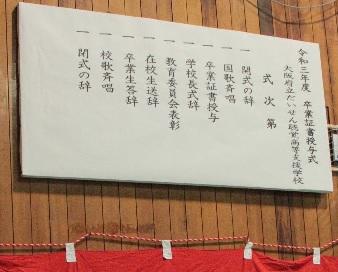 令和三年度 卒業証書授与式
大阪府立だいせん聴覚高等支援学校
式次第
一 開式の辞
一 国歌斉唱
一 卒業証書授与
一 学校長式辞
一 教育委員会表彰
一 在校生送辞
一 卒業生答辞
一 校歌斉唱
一 閉式の辞